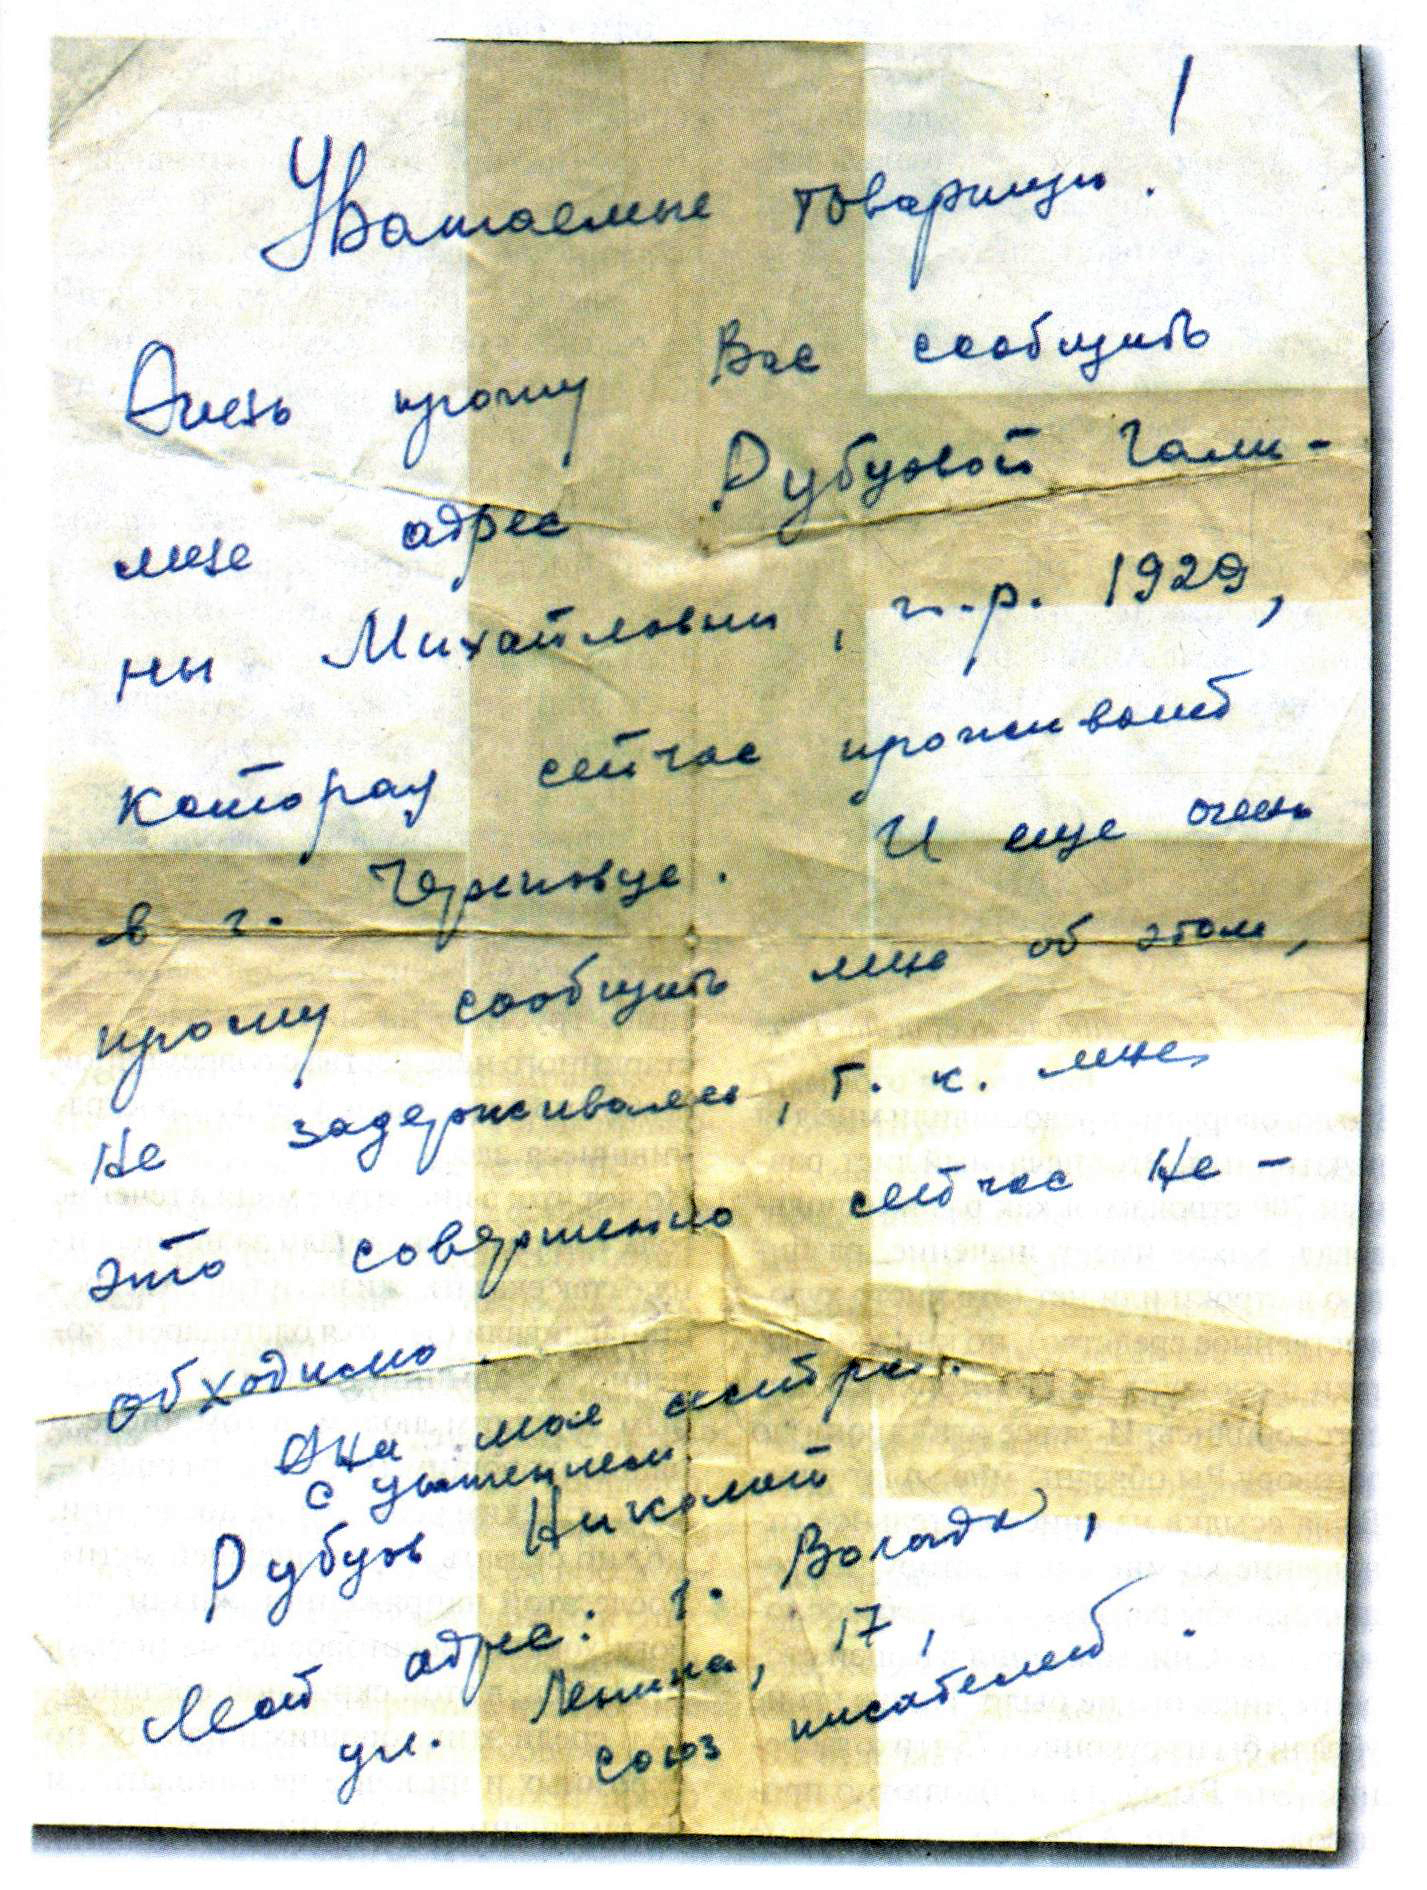 Уважаемые товарищи!
Очень прошу Вас сообщить
мне адрес Рубцовой Гали-
ны Михайловны, г.р. 1929,
которая сейчас проживает
в г. Череповце. И еще очень
прошу сообщить мне об этом,
не задерживаясь, т.к. мне
это совершенно сейчас не-
обходимо.
Она моя сестра.
С уважением
Рубцов Николай
Мой адрес: г. Вологда,
ул. Ленина, 17,
союз писателей.